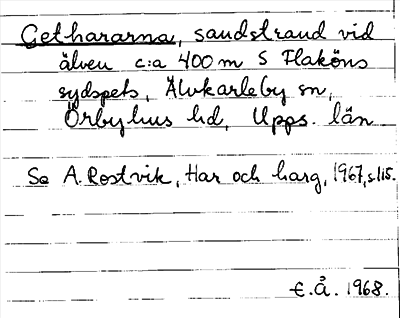 Gethararna, sandstrand vid
älven c:a 400 m S Flaköns
sydspets, Älvkarleby sn,
Örbyhus hd, Upps. län
Se A. Rostvik, Har och harg, 1967, s. 115.
E.Å. 1968.